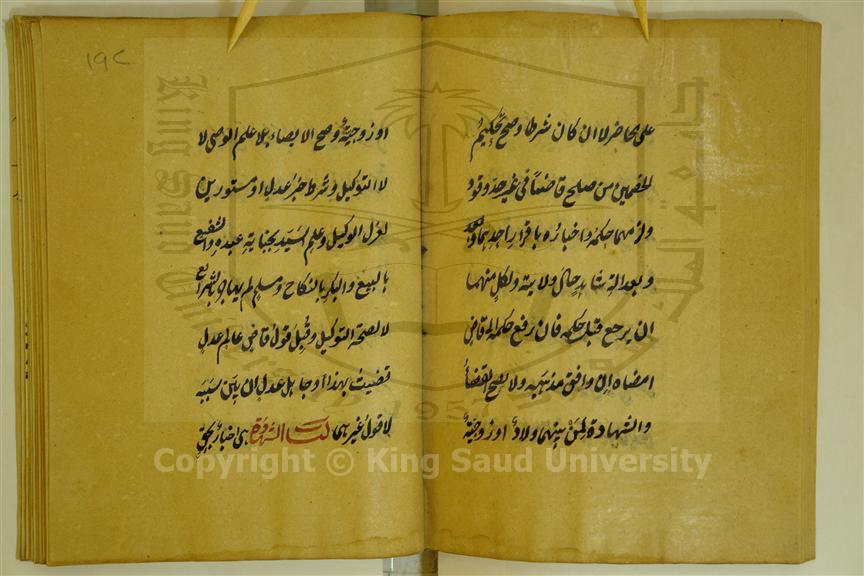 على محاضر لا ان كان شرطا وصح تحكيم
الخصمين من صلح قاضيا في غير حد وقود
ولزمهما حكمه واخباره باقرار احدهما
وبعدالة شاهد حال ولايته ولكل منهما
ان يرجع قبل حكمه فان رفع حكمه الى قاض
امضاه ان وافق مذهبه ولا يصح القضا
والشهادة لمن بينهما ولاد او زوجية
او زوجية وصح الايصاء بلا علم الوصي لا
لا التوكيل وشرط خبر عدل او مستورين
لعزل الوكيل وعلم السيد بجناية عبده والشفيع
بالبيع والبكر بالنكاح ومسلم لم يهاجر بالشرايع
لا لصحة التوكيل وقبل قول قاض عالم عدل
قضيت بهذا او جاهل عدل ان بين سببه
لا قول غيرهما كتاب الشهادة هي اخبار بحق
١٩٢
King Saud University
1957
Copyright © King Saud University